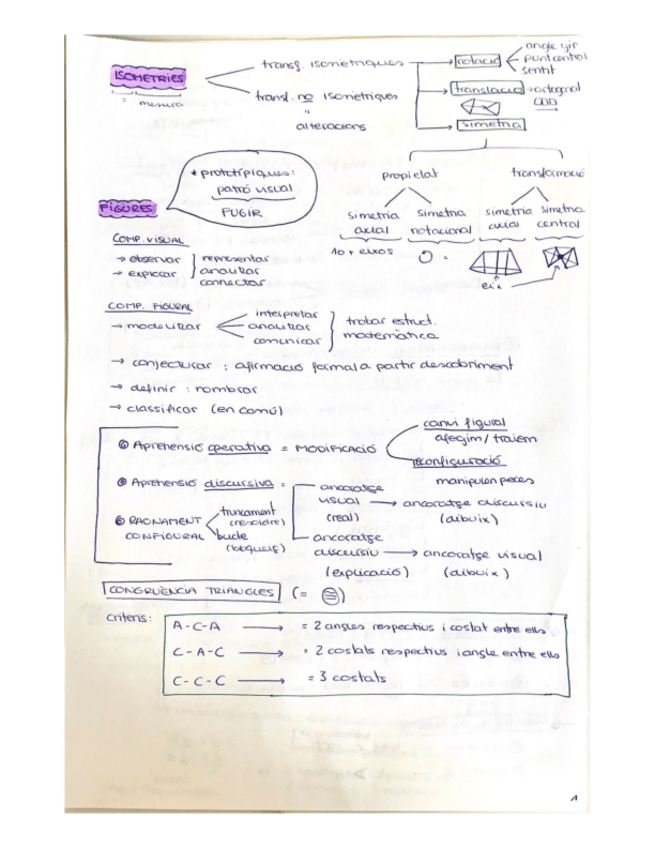 ISOMETRIES
= mesura
transf. isometriques
transf. no isometriques
"
alteracions
rotació
angle gir
punt central
sentit
translació → ortogonal
simetria
propietat
transformació
simetria axial
simetria rotacional
simetria axial
simetria central
10 + eixos
=
eix
* prototípiques:
patró visual
FUGIR
FIGURES
COMP. VISUAL
→ observar
→ explicar
representar
analitzar
connectar
COMP. FIGURAL
→ modelitzar
interpretar
analitzar
comunicar
tractar estruct.
matemàtica
→ conjecturar : afirmació formal a partir descobriment
→ definir : nombrar
→ classificar (en comú)
Aprehensió operativa = MODIFICACIÓ
canvi figural
afegim / traiem
reconfiguració
manipulen peces
Aprehensió discursiva =
ancoratge visual → ancoratge discursiu
(real) (dibuix)
ancoratge discursiu → ancoratge visual
(explicació) (dibuix)
RAONAMENT CONFIGURAL
truncament
bucle
CONGRUÈNCIA TRIANGLES (= )
criteris:
A - C - A → = 2 angles respectius i costat entre ells
C - A - C → = 2 costats respectius i angle entre ells
C - C - C → = 3 costats
1